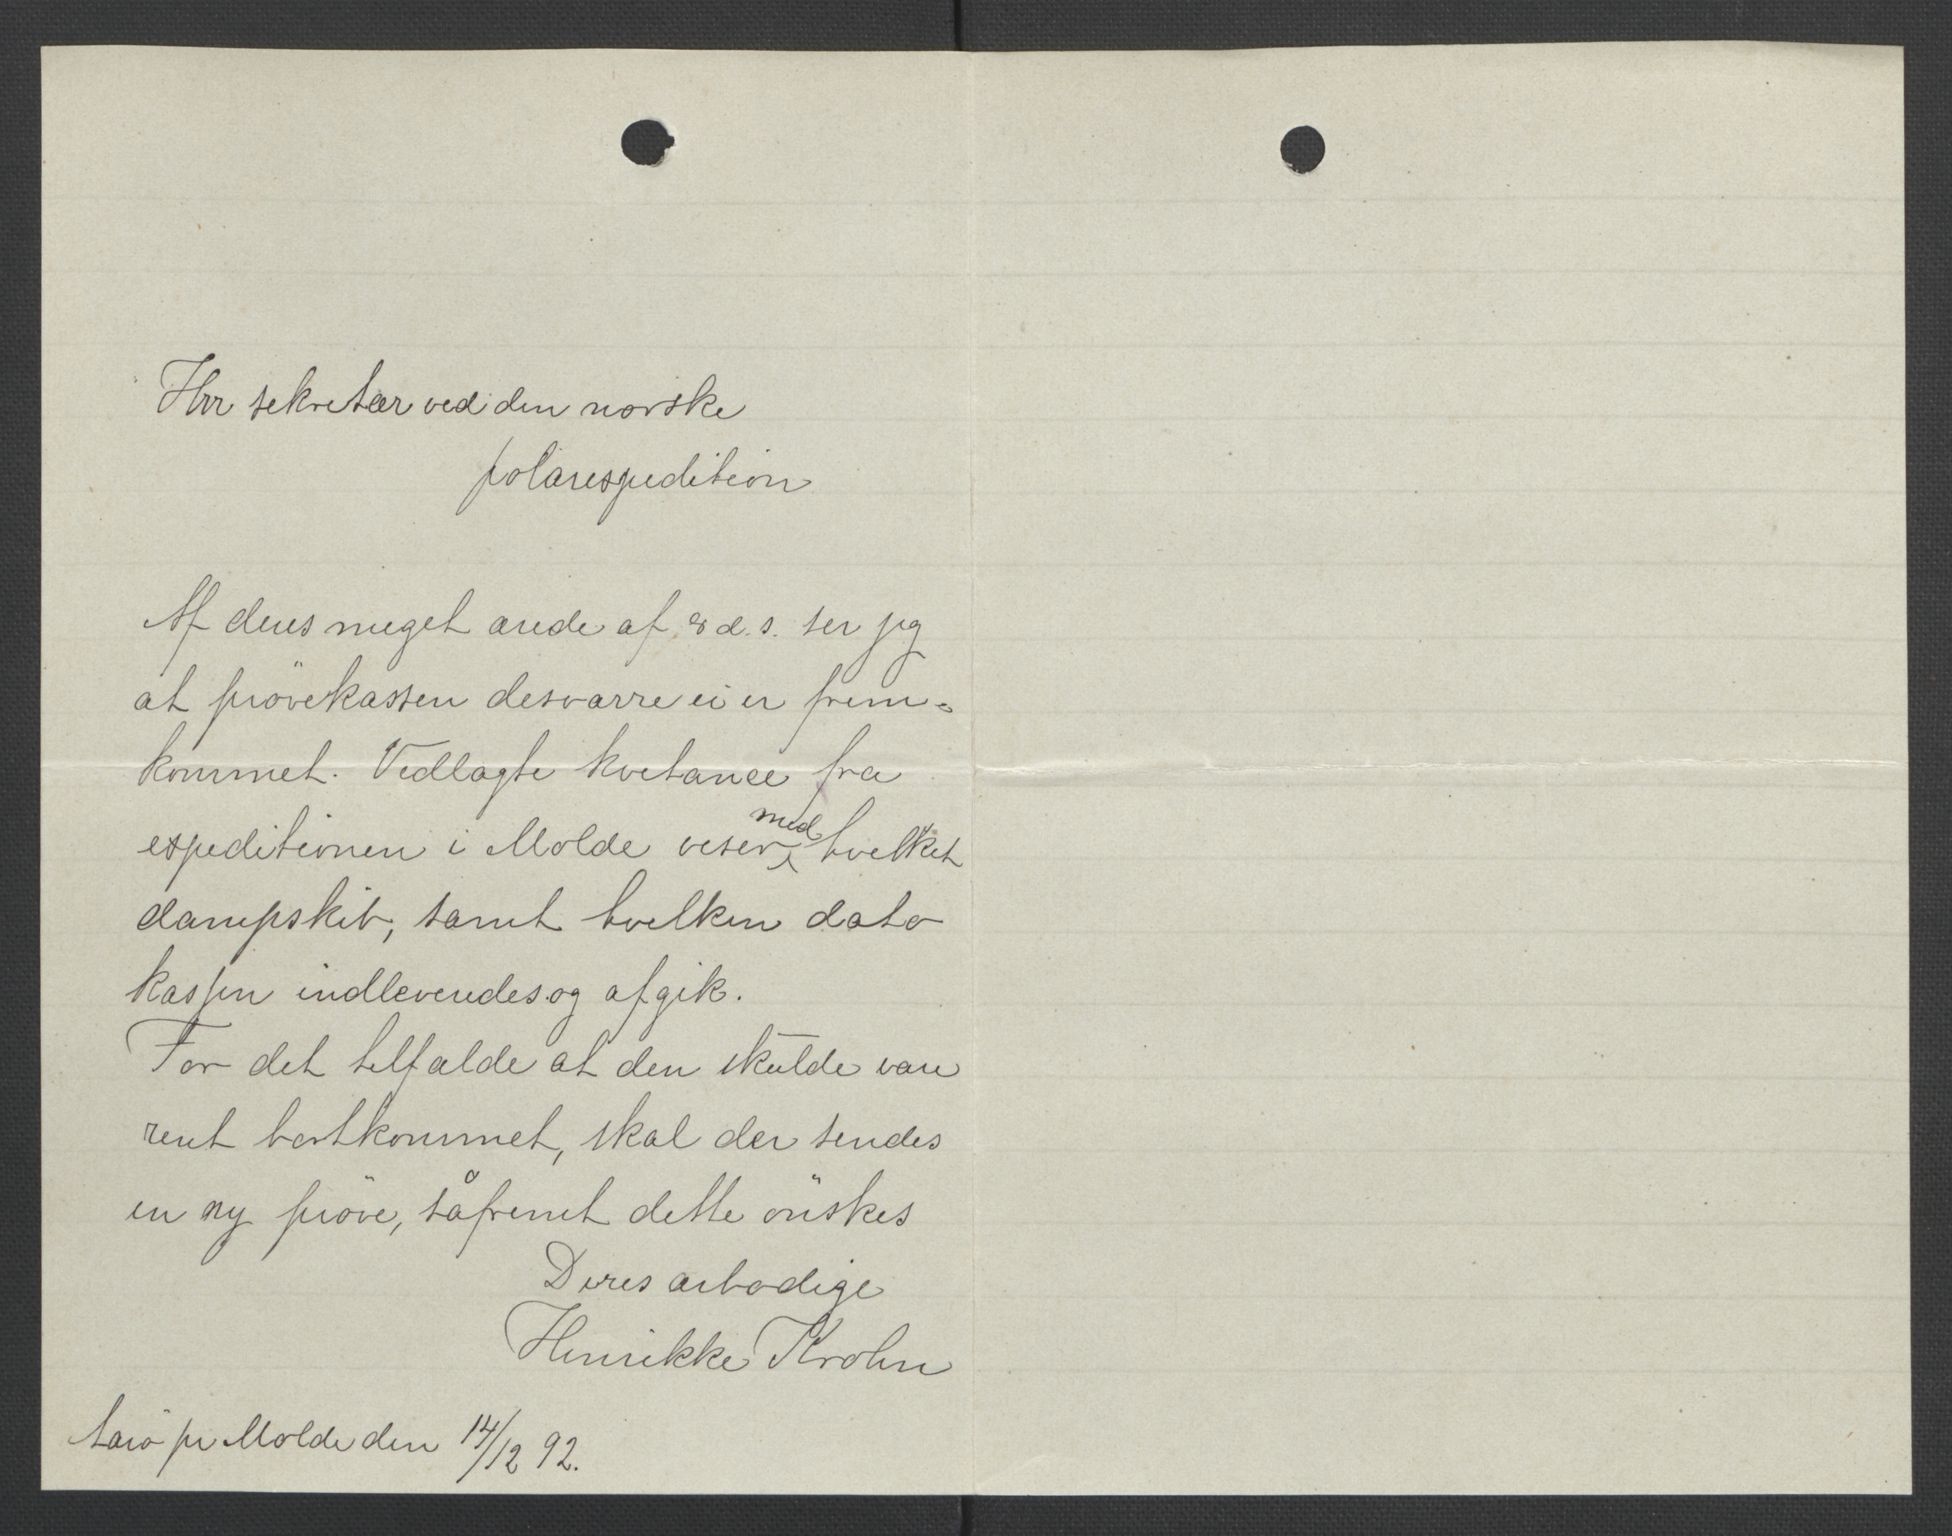 Hrr sekretær ved den norske
polarexpedition
Af deres meget ærede af 8 d. s. ser jeg
at prövekassen desværre ei er frem=
kommet. Vedlagte kvitance fra
expeditionen i Molde viser med hvilket
dampskib, samt hvilken dato
kassen indleveredes og afgik.
For det tilfælde at den skulde være
rent bortkommet, skal der sendes
en ny pröve, såfremt dette önskes
Deres ærbödige
Henrikke Krohn
pr Molde den 14/12 92.